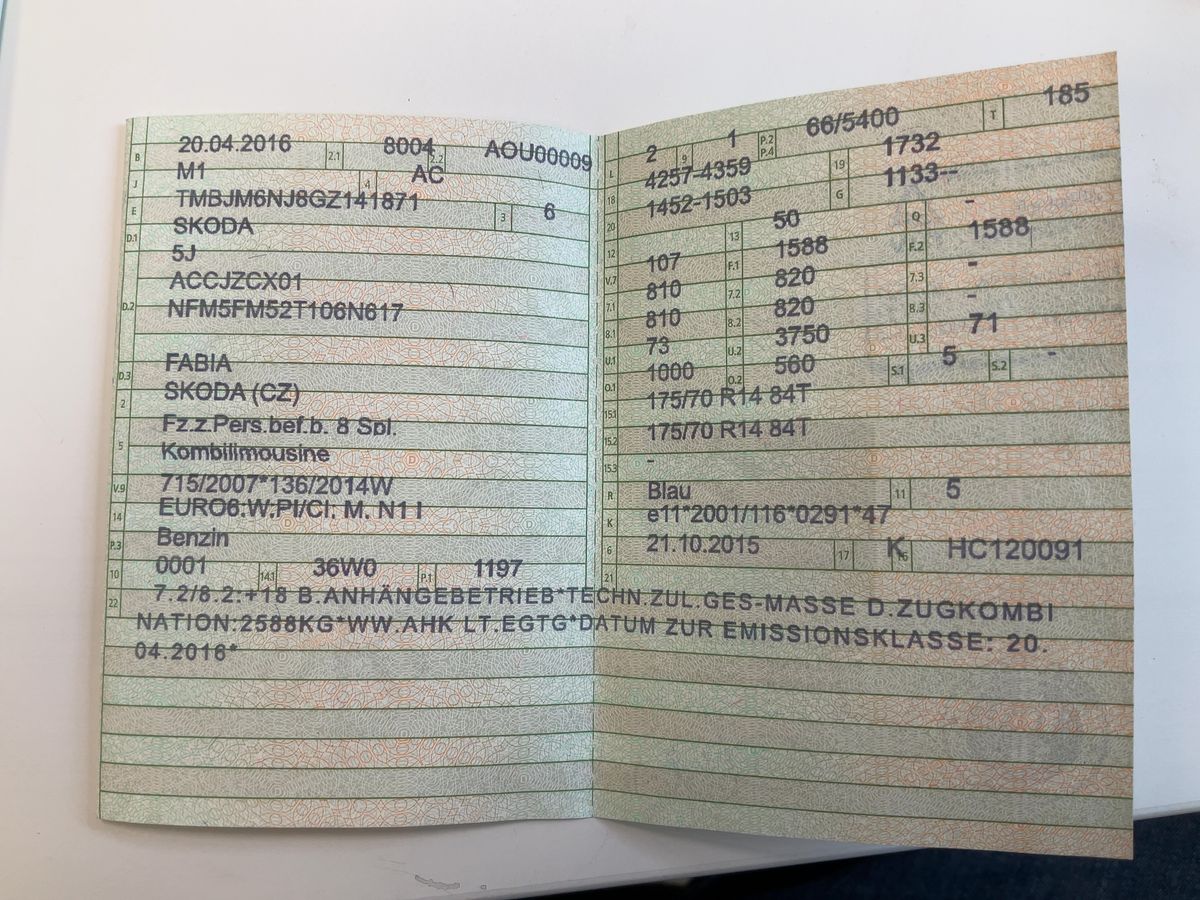 B 20.04.2016 2.1 8004 2.2 AOU00009
J M1 4 AC
E TMBJM6NJ8GZ141871 3 6
D.1 SKODA
5J
D.2 ACCJZCX01
NFM5FM52T106N617
D.3 FABIA
2 SKODA (CZ)
5 Fz.z.Pers.bef.b. 8 Spl.
Kombilimousine
V.9 715/2007*136/2014W
14 EURO6:W:PI/CI: M, N1 I
P.3 Benzin
10 0001 14.1 36W0 P.1 1197
L 2 9 1 P.2 P.4 66/5400 T 185
18 4257-4359 19 1732
20 1452-1503 G 1133--
12 - 13 50 Q -
V.7 107 F.1 1588 F.2 1588
7.1 810 7.2 820 7.3 -
8.1 810 8.2 820 8.3 -
U.1 73 U.2 3750 U.3 71
O.1 1000 O.2 560 S.1 5 S.2 -
15.1 175/70 R14 84T
15.2 175/70 R14 84T
15.3 -
R Blau 11 5
K e11*2001/116*0291*47
6 21.10.2015 17 K 16 HC120091
21
22 7.2/8.2:+18 B.ANHÄNGEBETRIEB*TECHN.ZUL.GES-MASSE D.ZUGKOMBI
NATION:2588KG*WW.AHK LT.EGTG*DATUM ZUR EMISSIONSKLASSE: 20.
04.2016*